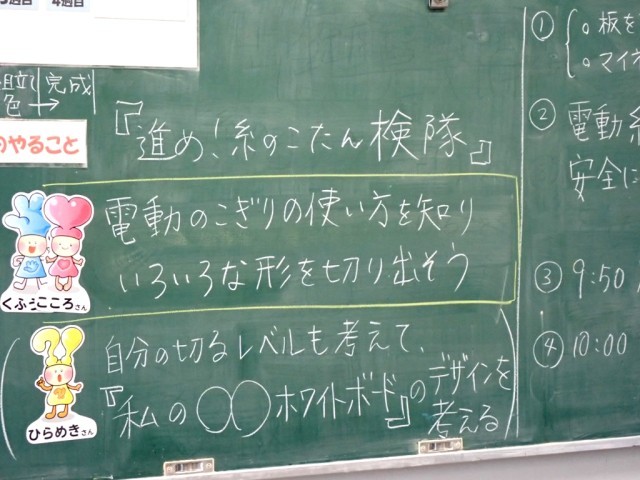 4週目
組立て 完成
色→
のやること
『進め!糸のこたん検隊』
電動のこぎりの使い方を知り
いろいろな形を切り出そう
くふうこころさん
自分の切るレベルも考えて、
『私の〇〇ホワイトボード』のデザインを
考える
ひらめきさん
① 。板を
。マイ
② 電動糸
安全に
③ 9:50
④ 10:00